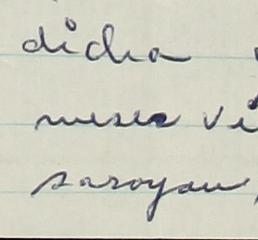 dicha
meses vi
saroyan,